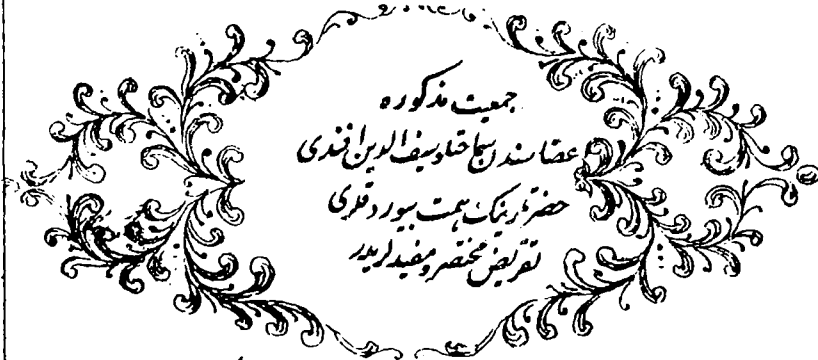 جمعیت مذکوره
اعضاسندن سماحتلو سیف الدین افندی
حضرتلرینک همت بیوردقلری
تقریض مختصر و مفیدلریدر